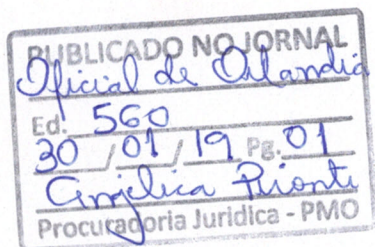 PUBLICADO NO JORNAL
Oficial de Orlandia
Ed. 560
30 / 01 / 19 Pg. 01
Angélica
Procuradoria Juridica - PMO